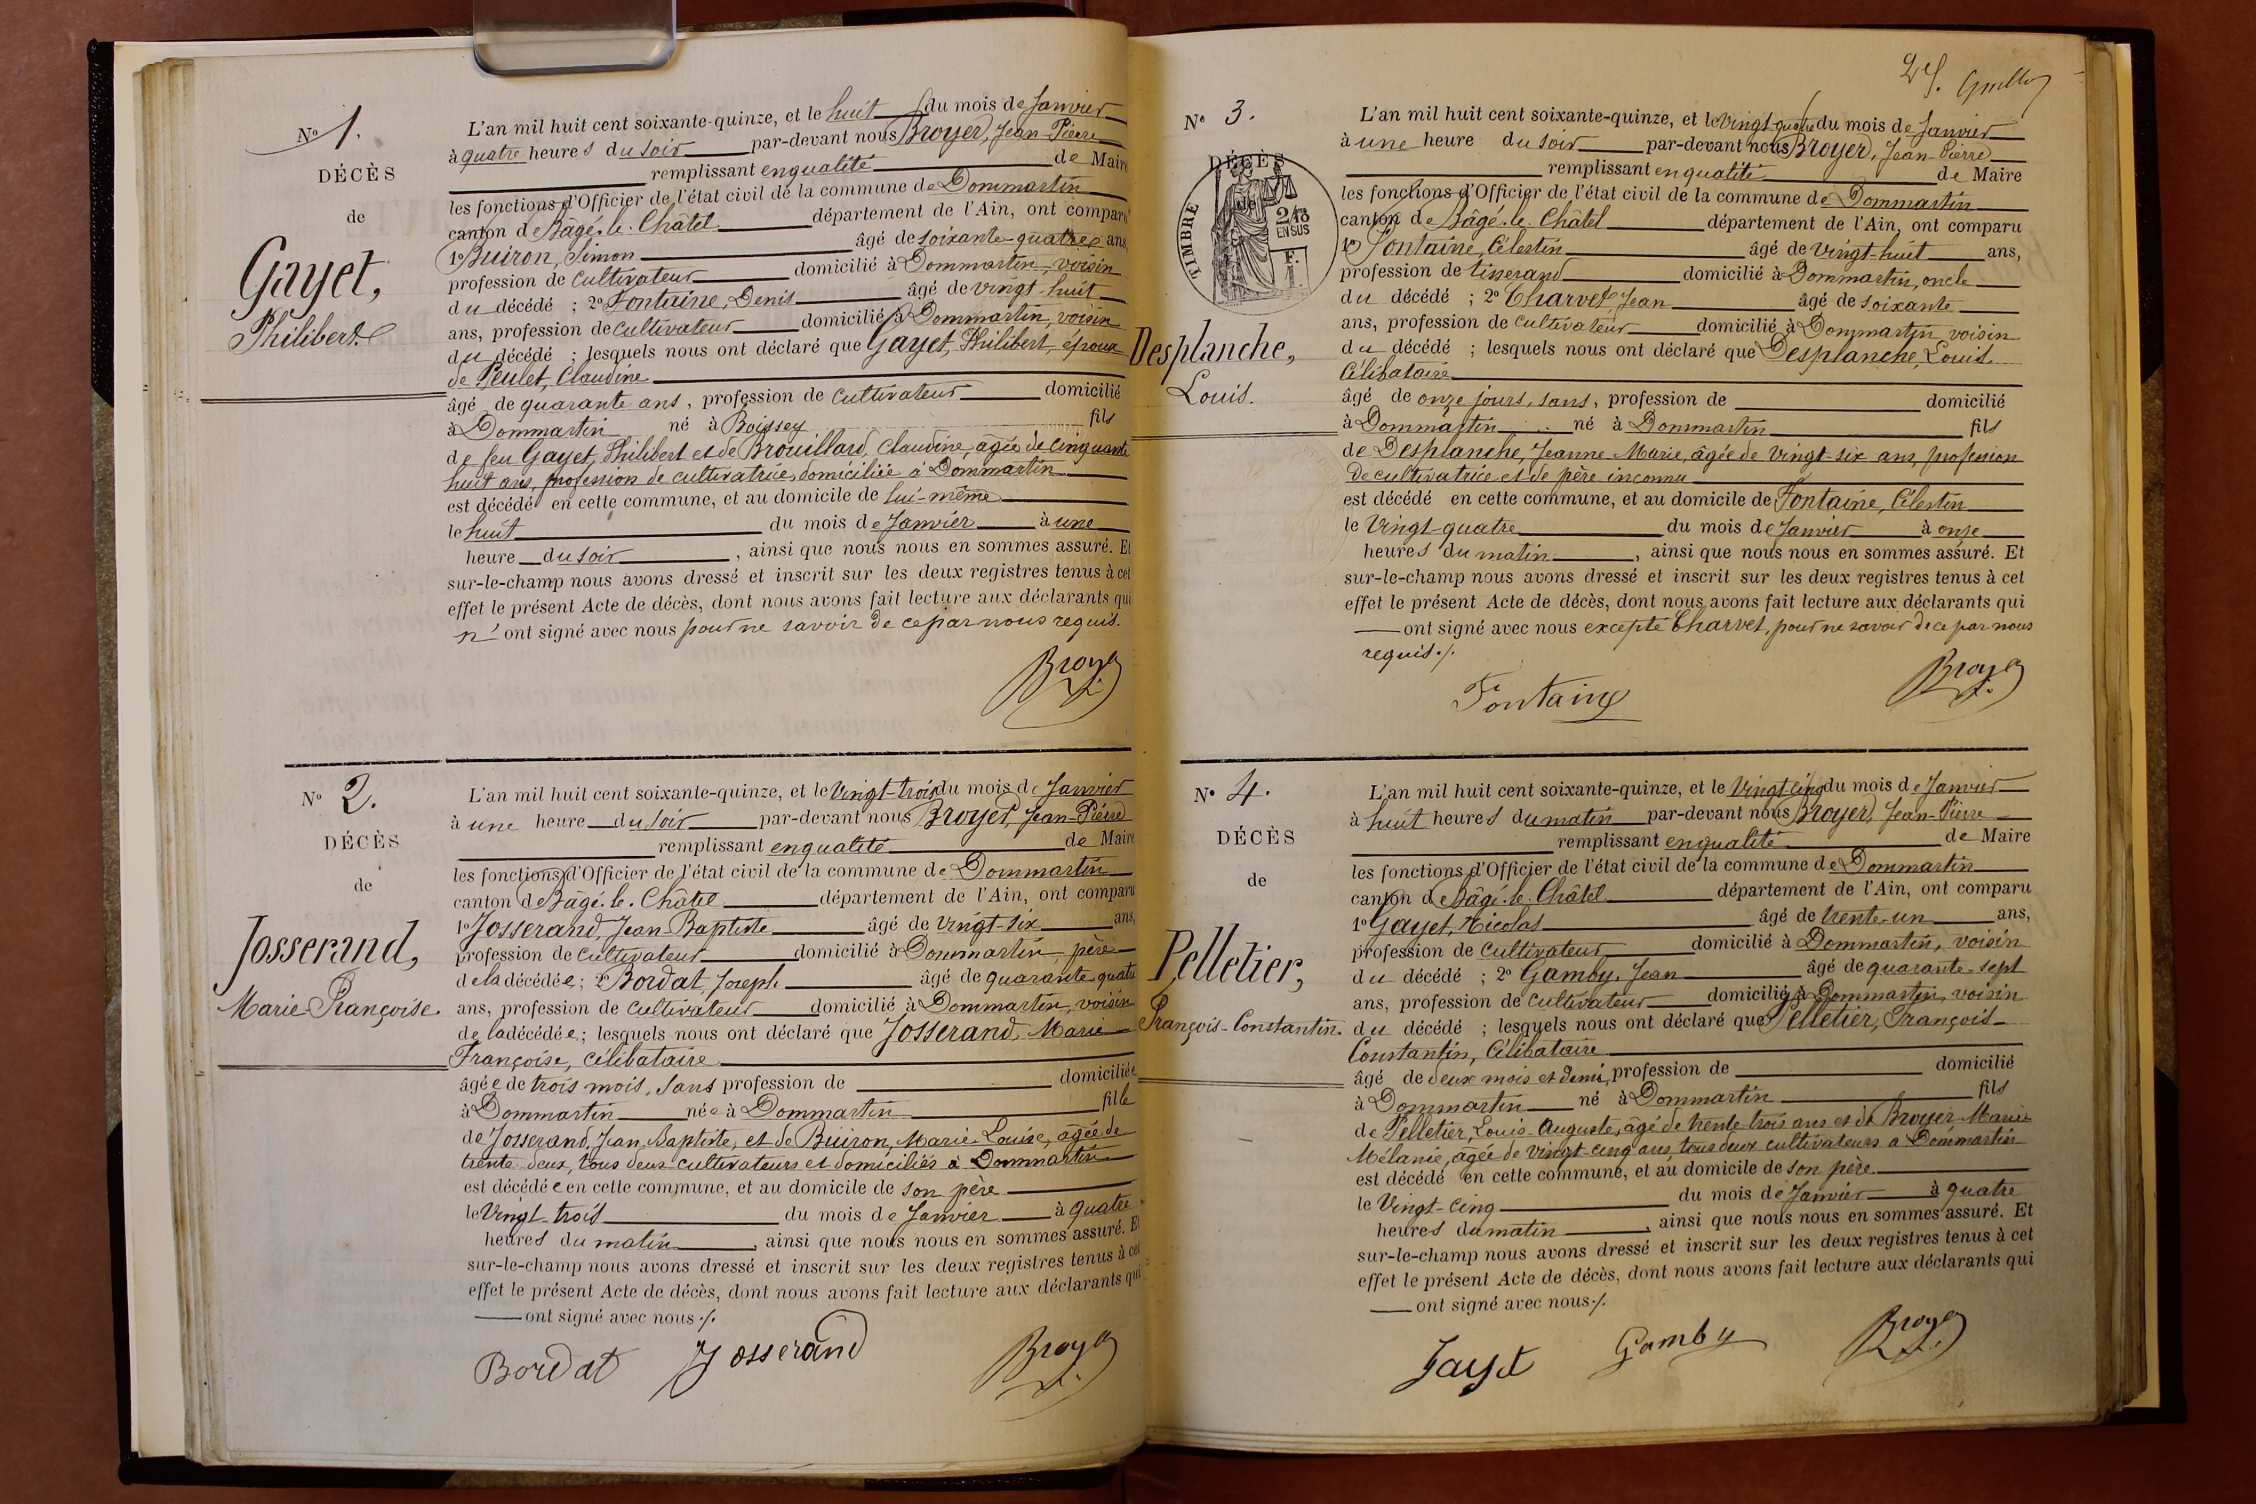 N° 1.
DÉCÈS
de
Gayet,
Philibert
L'an mil huit cent soixante-quinze, et le huit du mois de Janvier
à quatre heures du soir par-devant nous Broyer, Jean-Pierre
remplissant en qualité de Maire
les fonctions d'Officier de l'état civil de la commune de Dommartin
canton de Bâgé-le-Châtel département de l'Ain, ont comparu
1° Buiron, Simon âgé de soixante-quatre ans,
profession de cultivateur domicilié à Dommartin, voisin
du décédé ; 2° Fontaine, Denis âgé de vingt-huit
ans, profession de cultivateur domicilié à Dommartin, voisin
du décédé ; lesquels nous ont déclaré que Gayet, Philibert, époux
de Peulet, Claudine
âgé de quarante ans, profession de cultivateur domicilié
à Dommartin né à Boissey fils
de feu Gayet, Philibert et de Brouillard, Claudine, agée de cinquante
huit ans, profession de cultivatrice, domiciliée à Dommartin
est décédé en cette commune, et au domicile de lui-même
le huit du mois de Janvier à une
heure du soir, ainsi que nous nous en sommes assuré. Et
sur-le-champ nous avons dressé et inscrit sur les deux registres tenus à cet
effet le présent Acte de décès, dont nous avons fait lecture aux déclarants qui
n'ont signé avec nous pour ne savoir de ce par nous requis.
Broyer
N° 2.
DÉCÈS
de
Josserand,
Marie Françoise.
L'an mil huit cent soixante-quinze, et le vingt-trois du mois de Janvier
à une heure du soir par-devant nous Broyer, Jean-Pierre
remplissant en qualité de Maire
les fonctions d'Officier de l'état civil de la commune de Dommartin
canton de Bâgé-le-Châtel département de l'Ain, ont comparu
1° Josserand, Jean Baptiste âgé de vingt-six ans,
profession de cultivateur domicilié à Dommartin, père
de la décédée ; 2° Bordat, Joseph âgé de quarante-quatre
ans, profession de cultivateur domicilié à Dommartin, voisin
de la décédée ; lesquels nous ont déclaré que Josserand, Marie
Françoise, célibataire
âgée de trois mois, sans profession de domiciliée
à Dommartin née à Dommartin fille
de Josserand, Jean Baptiste, et de Buiron, Marie-Louise, âgée de
trente deux, tous deux cultivateurs et domiciliés à Dommartin
est décédée en cette commune, et au domicile de son père
le vingt-trois du mois de Janvier à quatre
heures du matin, ainsi que nous nous en sommes assuré. Et
sur-le-champ nous avons dressé et inscrit sur les deux registres tenus à cet
effet le présent Acte de décès, dont nous avons fait lecture aux déclarants qui
ont signé avec nous ./.
Bordat Josserand Broyer
N° 3.
DÉCÈS
TIMBRE
de
2/10
EN SUS
F.
Desplanche,
Louis.
L'an mil huit cent soixante-quinze, et le vingt-quatre du mois de Janvier
à une heure du soir par-devant nous Broyer, Jean-Pierre
remplissant en qualité de Maire
les fonctions d'Officier de l'état civil de la commune de Dommartin
canton de Bâgé-le-Châtel département de l'Ain, ont comparu
1° Fontaine, Célestin âgé de vingt-huit ans,
profession de tisserand domicilié à Dommartin, oncle
du décédé ; 2° Charvet, Jean âgé de soixante
ans, profession de cultivateur domicilié à Dommartin, voisin
du décédé ; lesquels nous ont déclaré que Desplanche, Louis
célibataire
âgé de onze jours, sans, profession de domicilié
à Dommartin né à Dommartin fils
de Desplanche, Jeanne Marie, âgée de vingt-six ans, profession
de cultivatrice et de père inconnu
est décédé en cette commune, et au domicile de Fontaine, Célestin
le vingt-quatre du mois de Janvier à onze
heures du matin, ainsi que nous nous en sommes assuré. Et
sur-le-champ nous avons dressé et inscrit sur les deux registres tenus à cet
effet le présent Acte de décès, dont nous avons fait lecture aux déclarants qui
ont signé avec nous excepté Charvet, pour ne savoir de ce par nous
requis ./.
Fontaine Broyer
N° 4.
DÉCÈS
de
Pelletier,
François-Constantin.
L'an mil huit cent soixante-quinze, et le vingt-cinq du mois de Janvier
à huit heures du matin par-devant nous Broyer, Jean-Pierre
remplissant en qualité de Maire
les fonctions d'Officier de l'état civil de la commune de Dommartin
canton de Bâgé-le-Châtel département de l'Ain, ont comparu
1° Gayet, Nicolas âgé de trente-un ans,
profession de cultivateur domicilié à Dommartin, voisin
du décédé ; 2° Gamby, Jean âgé de quarante-sept
ans, profession de cultivateur domicilié à Dommartin, voisin
du décédé ; lesquels nous ont déclaré que Pelletier, François-
Constantin, célibataire
âgé de deux mois et demi, profession de domicilié
à Dommartin né à Dommartin fils
de Pelletier, Louis-Auguste, âgé de trente-trois ans et de Broyer, Marie
Mélanie, agée de vingt-cinq ans, tous deux cultivateurs à Dommartin
est décédé en cette commune, et au domicile de son père
le vingt-cinq du mois de Janvier à quatre
heures du matin, ainsi que nous nous en sommes assuré. Et
sur-le-champ nous avons dressé et inscrit sur les deux registres tenus à cet
effet le présent Acte de décès, dont nous avons fait lecture aux déclarants qui
ont signé avec nous ./.
Gayet Gamby Broyer